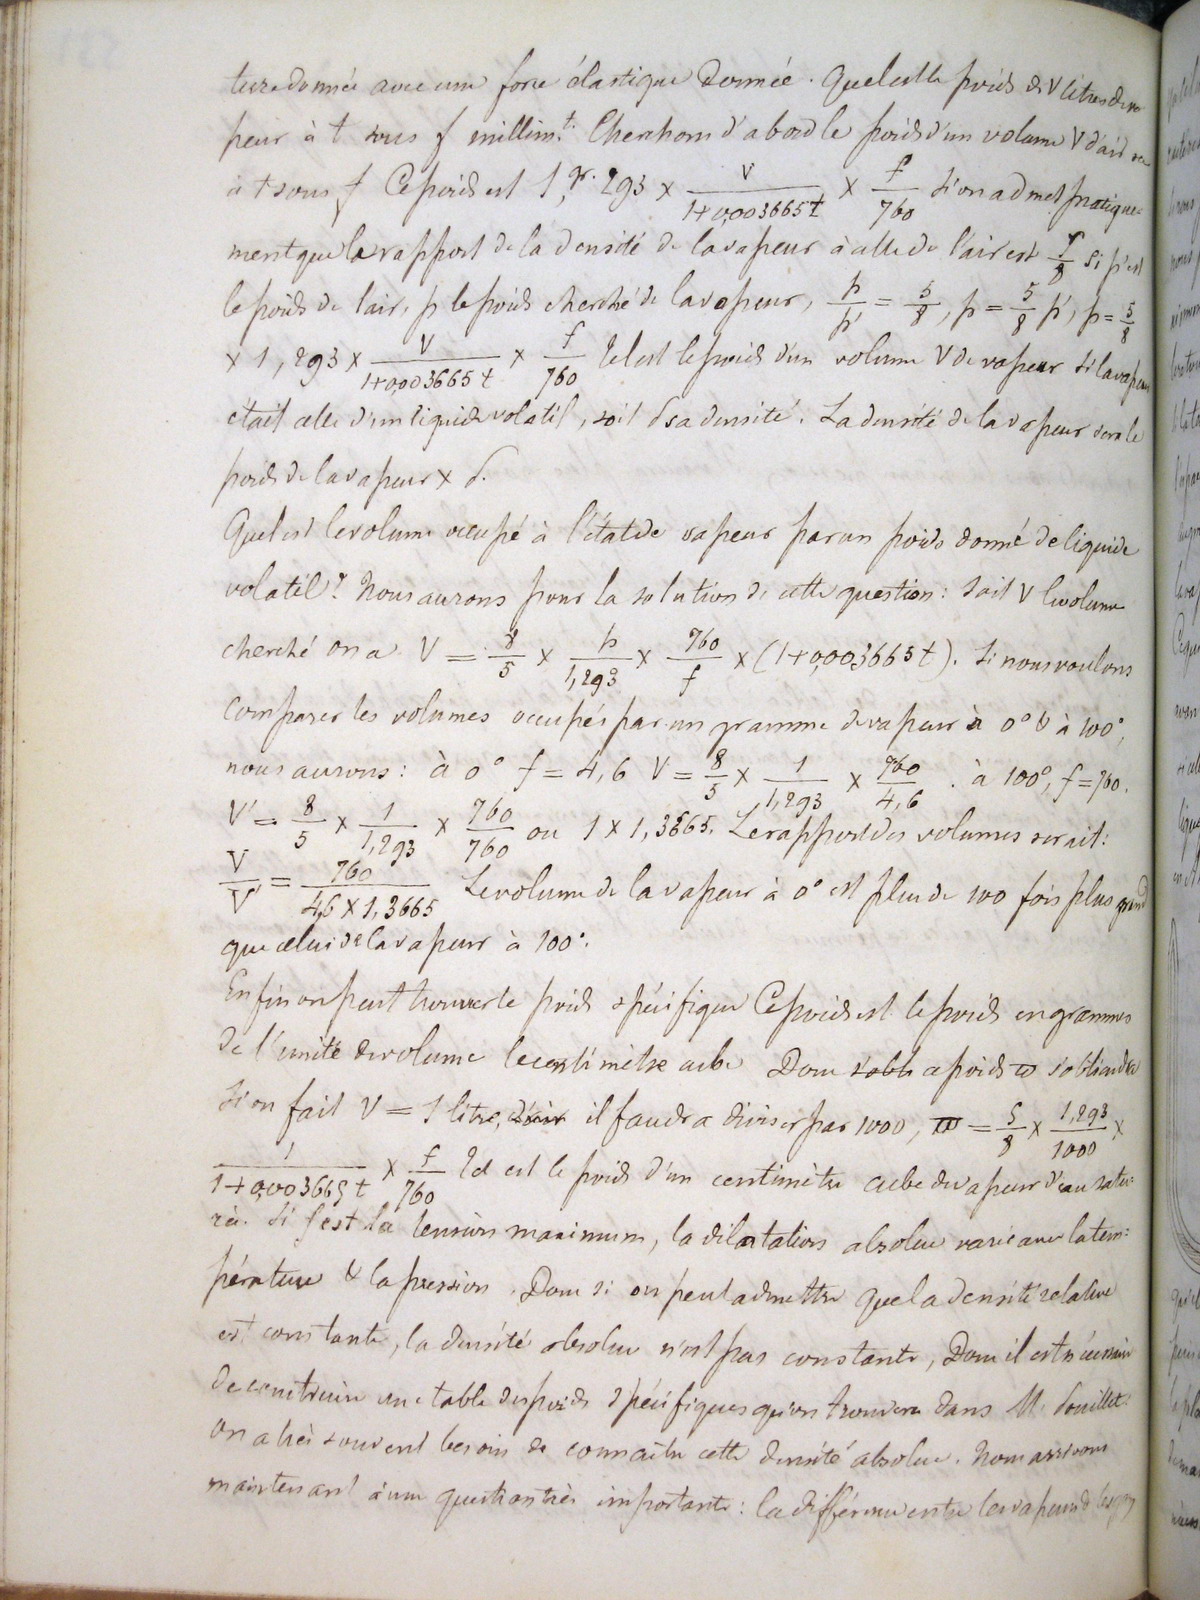 ture donnée avec une force élastique donnée. Quel est le poids de V litres de va
peur à t sous f millim.t. Cherchons d'abord le poids d'un volume V d'air sec
à t sous f Ce poids est 1,gr. 293 × V/(1+0,003665t) × f/760 si on admet pratique-
ment que le rapport de la densité de la vapeur à celle de l'air est 5/8 si p' est
le poids de l'air, p le poids cherché de la vapeur, p/p' = 5/8, p = 5/8 p', p = 5/8
× 1,293 × V/(1+0,003665t) × f/760 tel est le poids d'un volume V de vapeur si la vapeur
était celle d'un liquide volatil, soit δ sa densité. La densité de la vapeur sera le
poids de la vapeur × δ.
Quel est le volume occupé à l'état de vapeur par un poids donné de liquide
volatil? Nous aurons pour la solution de cette question: soit V le volume
cherché on a V = 8/5 × p/1,293 × 760/f × (1+0,003665t). Si nous voulons
comparer les volumes occupés par un gramme de vapeur à 0° & à 100°,
nous aurons: à 0° f = 4,6 V = 8/5 × 1/1,293 × 760/4,6. à 100°, f = 760.
V' = 8/5 × 1/1,293 × 760/760 ou 1 × 1,3665. Le rapport des volumes serait:
V/V' = 760/(4,6 × 1,3665) Le volume de la vapeur à 0° est plus de 100 fois plus grand
que celui de la vapeur à 100°.
Enfin on peut trouver le poids spécifique Ce poids est le poids en grammes
de l'unité de volume le centimètre cube Donc ce poids ϖ s'obtiendra
si on fait V = 1 litre, il faudra diviser par 1000, ϖ = 5/8 × 1,293/1000 ×
1/(1+0,003665t) × f/760 Tel est le poids d'un centimètre cube de vapeur d'eau satu-
rée. Si f est la tension maximum, la dilatation absolue varie avec la tem-
pérature & la pression. Donc si on peut admettre que la densité relative
est constante, la densité absolue n'est pas constante, Donc il est nécessaire
de construire une table des poids spécifiques qu'on trouvera dans M. Pouillet.
On a très souvent besoin de connaître cette densité absolue. Nous arrivons
maintenant à une question très importante: la différence entre les vapeurs & les gaz